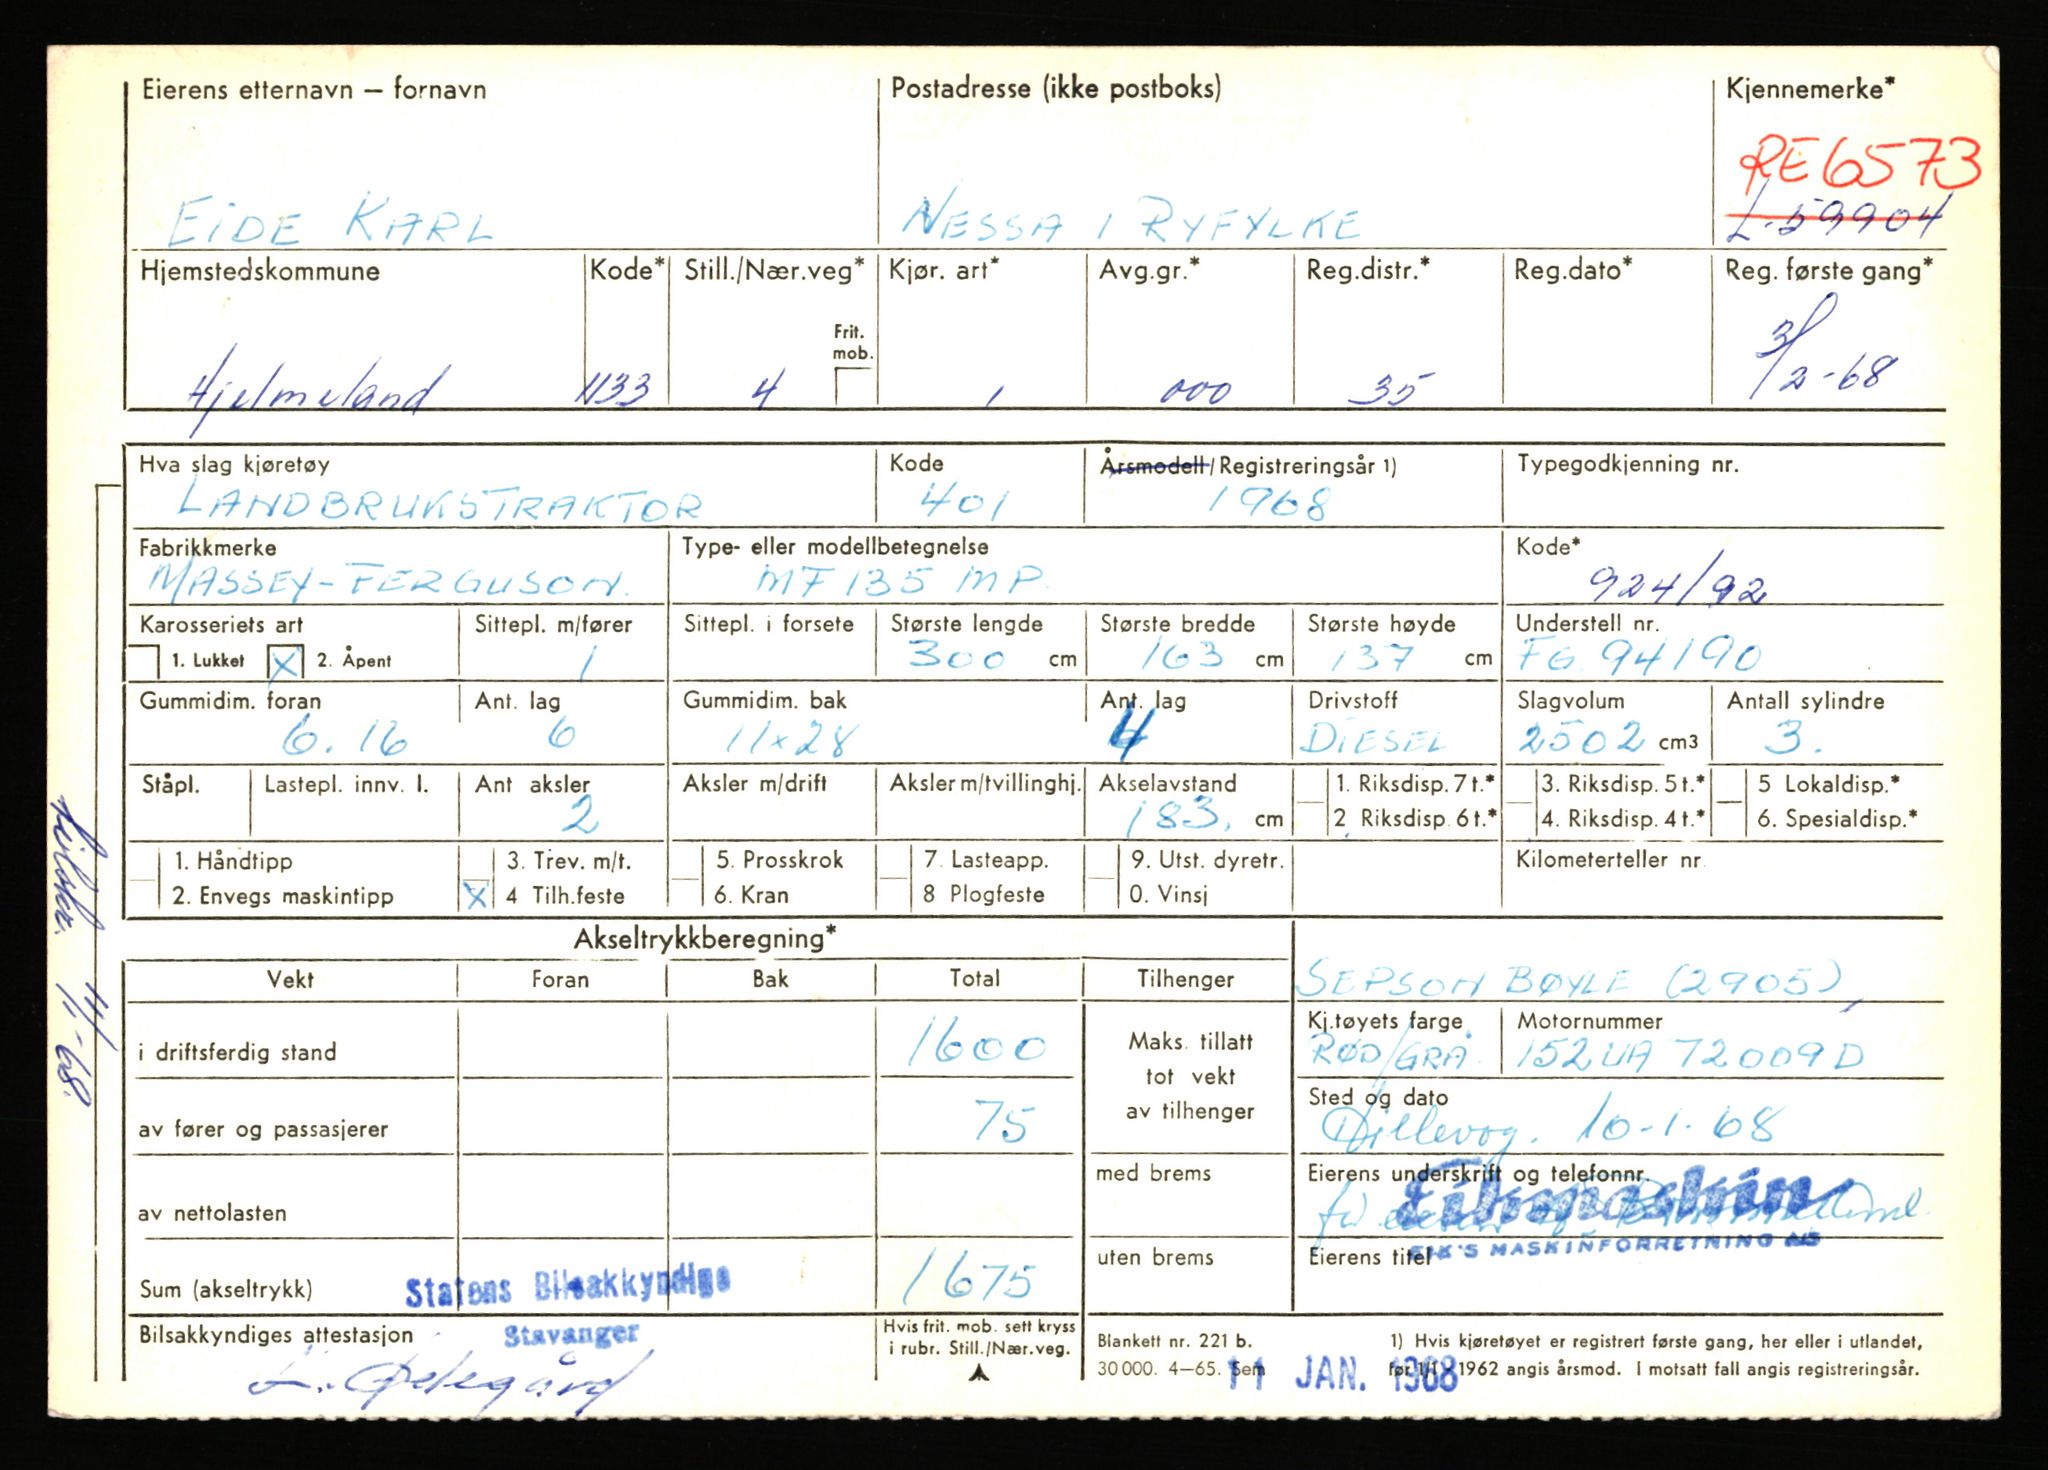 Eierens etternavn — fornavn Postadresse (ikke postboks) Kjennemerke*
RE6573
EIDE KARL NESSA I RYFYLKE L-59904
Hjemstedskommune Kode* Still./Nær.veg* Kjør. art* Avg.gr.* Reg.distr.* Reg.dato* Reg. første gang*
Frit.
mob.
Hjelmeland 1133 4 1 000 35 3/2-68
Hva slag kjøretøy Kode Årsmodell/Registreringsår 1) Typegodkjenning nr.
LANDBRUKSTRAKTOR 401 1968
Fabrikkmerke Type- eller modellbetegnelse Kode*
MASSEY-FERGUSON. MF 135 MP. 924/92
Karosseriets art Sittepl. m/fører Sittepl. i forsete Største lengde Største bredde Største høyde Understell nr.
1. Lukket X 2. Åpent 1 300 cm 163 cm 137 cm FG. 94190
Gummidim. foran Ant. lag Gummidim. bak Ant. lag Drivstoff Slagvolum Antall sylindre
6.16 6 11x28 4 DIESEL 2502 cm3 3.
Ståpl. Lastepl. innv. l. Ant aksler Aksler m/drift Aksler m/tvillinghj. Akselavstand 1. Riksdisp. 7 t.* 3. Riksdisp. 5 t.* 5 Lokaldisp.*
2 183. cm 2 Riksdisp. 6 t.* 4. Riksdisp. 4 t.* 6. Spesialdisp.*
1. Håndtipp 3. Trev. m/t. 5. Prosskrok 7. Lasteapp. 9. Utst. dyretr. Kilometerteller nr.
2. Envegs maskintipp X 4 Tilh.feste 6. Kran 8 Plogfeste 0. Vinsj
Akseltrykkberegning*
Vekt Foran Bak Total Tilhenger SEPSON BØYLE (2905),
i driftsferdig stand 1600 Maks. tillatt
tot vekt
av tilhenger
Kj.tøyets farge Motornummer
RØD/GRÅ 152UA 72009D
av fører og passasjerer 75
Sted og dato
10-1.68
av nettolasten med brems Eierens underskrift og telefonnr.
Eikmaskin
EIK'S MASKINFORRETNING AS
Sum (akseltrykk) 1675 uten brems Eierens titel
Statens Bilsakkyndige
Stavanger
Bilsakkyndiges attestasjon
Hvis frit. mob. sett kryss
i rubr. Still./Nær.veg.
Blankett nr. 221 b.
30 000. 4—65. Sem
11 JAN. 1968
1) Hvis kjøretøyet er registrert første gang, her eller i utlandet,
før 1/1 - 1962 angis årsmod. I motsatt fall angis registreringsår.
11/1-68.